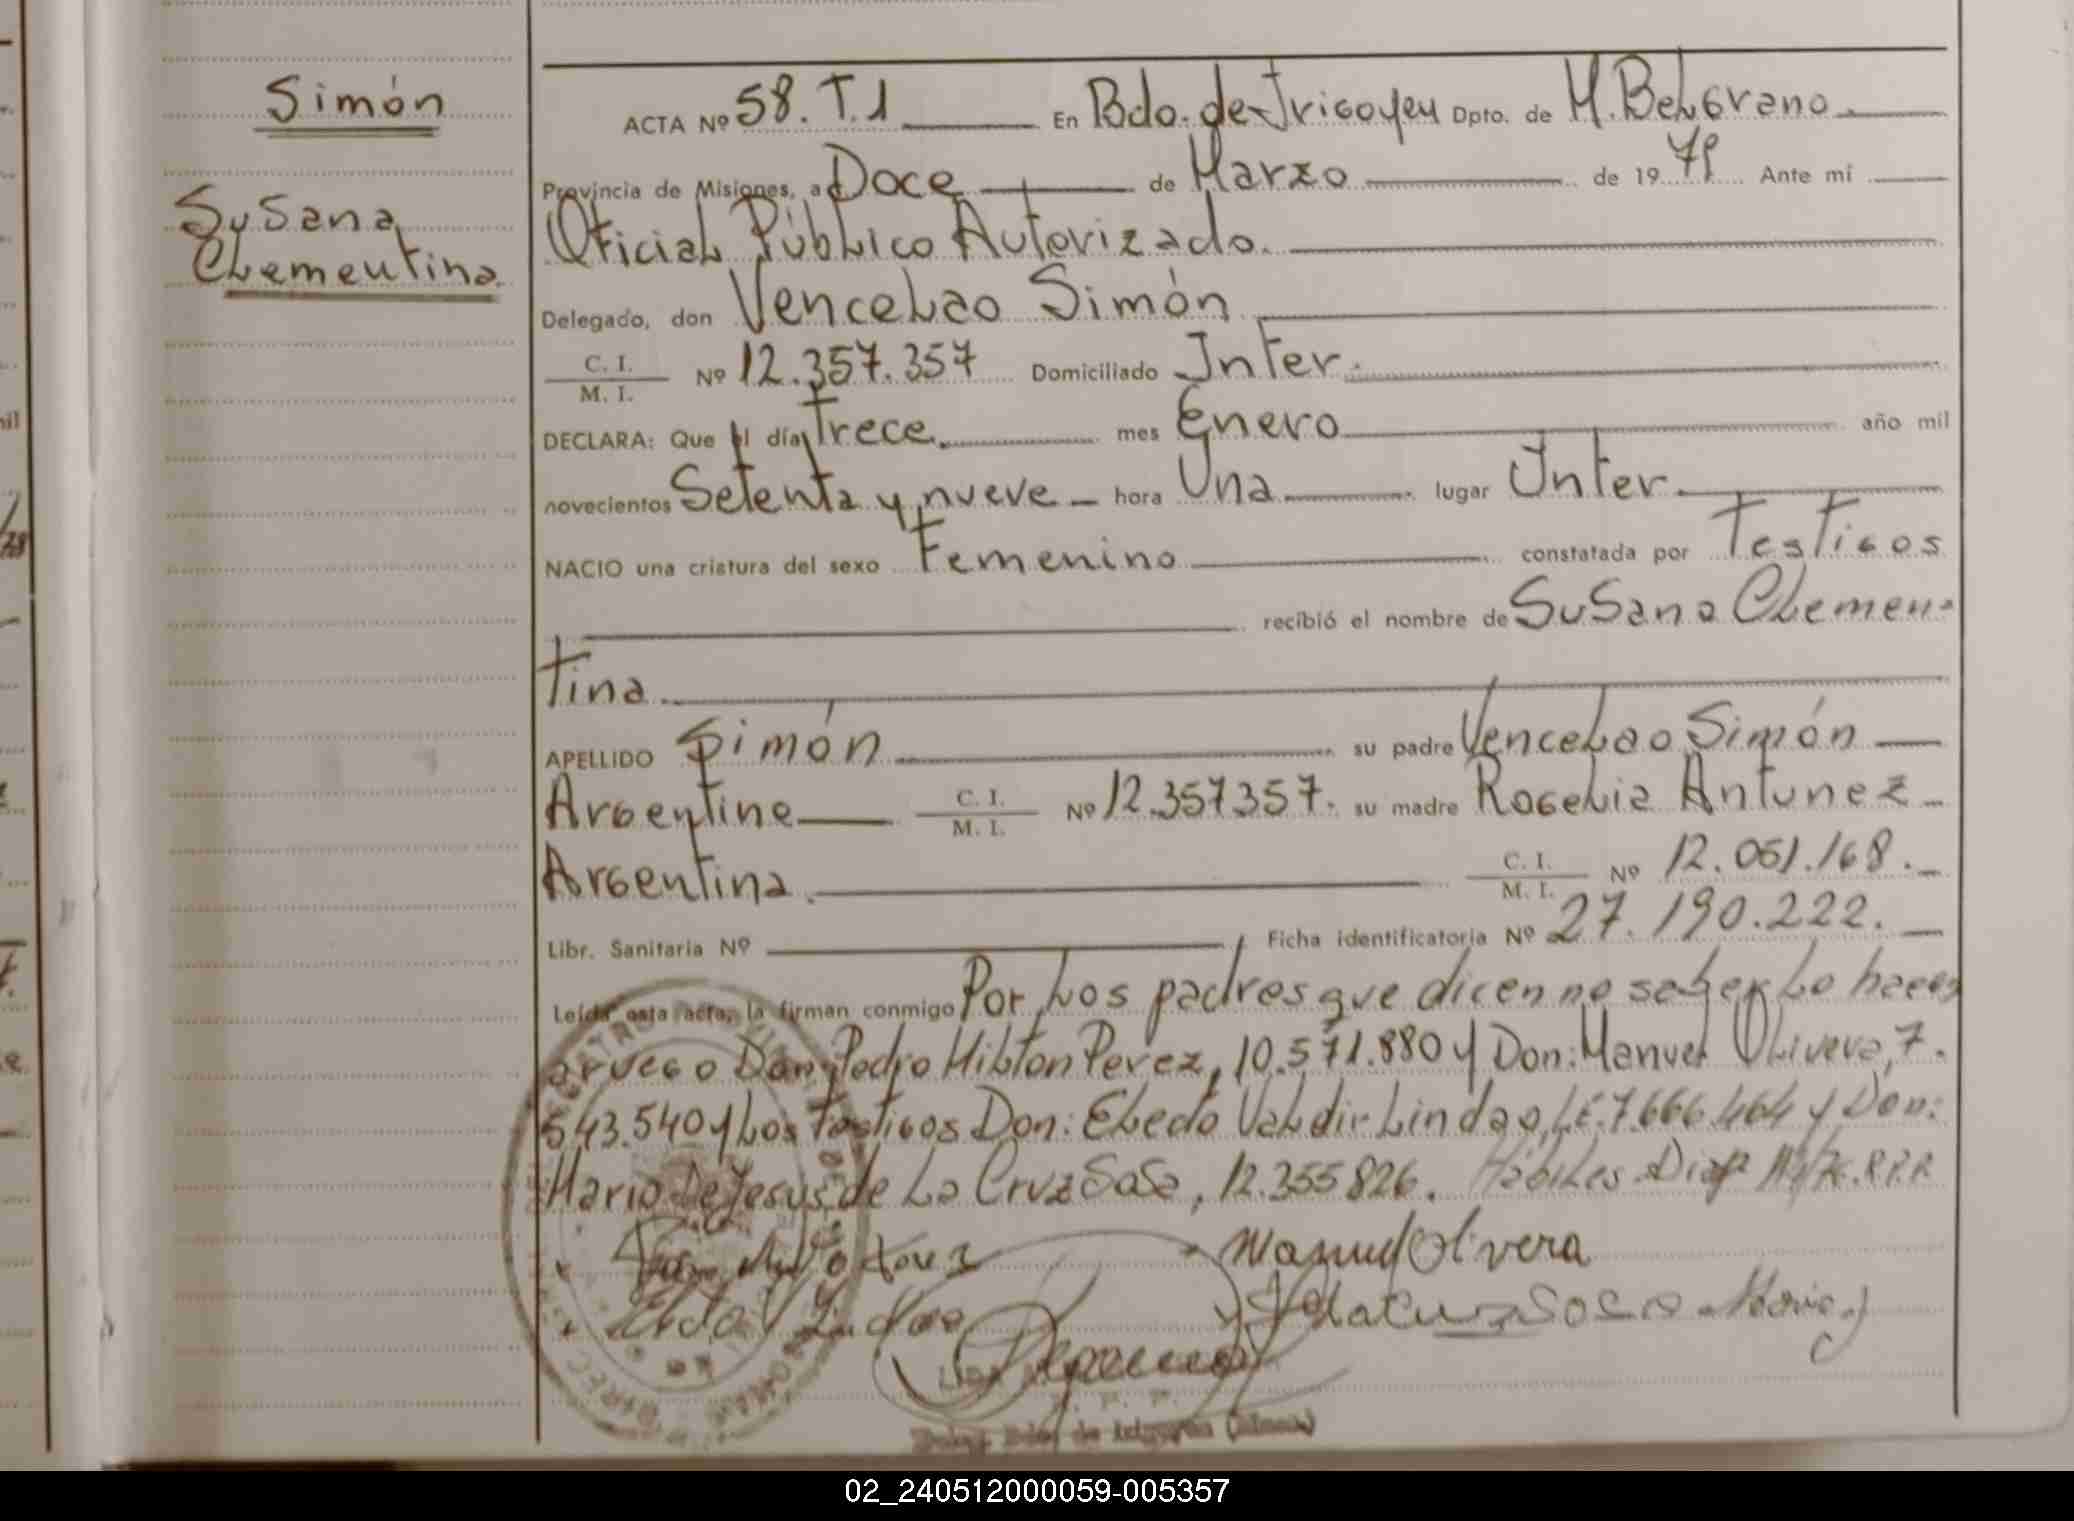 Simón
Susana
Clementina
ACTA Nº 58. T.1 En Bdo. de Irigoyen Dpto. de M. Belgrano.
Provincia de Misiones, a Doce de Marzo de 1979 Ante mí
Oficial Público Autorizado.
Delegado, don Vencelao Simón
C. I.
M. I. Nº 12.357.357 Domiciliado Inter.
DECLARA: Que el día Trece. mes Enero año mil
novecientos Setenta y nueve hora Una lugar Inter.
NACIO una criatura del sexo Femenino constatada por Testigos
recibió el nombre de Susana Clemen-
tina.
APELLIDO Simón su padre Vencelao Simón
Argentino C. I. M. I. Nº 12.357357. su madre Rogelia Antunez
Argentina. C. I. M. I. Nº 12.051.168.
Libr. Sanitaria Nº Ficha identificatoria Nº 27.190.222.
Leída esta acta, la firman conmigo Por los padres que dicen no saber lo hacen
a ruego Don Pedro Hilton Perez, 10.571.880 y Don: Manuel Olivera, 7.
543.540 y los Testigos Don: Eledo Valdir Lindao, LE. 7.666.464 y Don:
Mario De Jesus de La Cruz Sosa, 12.355826.
Manuel Olivera
02_240512000059-005357